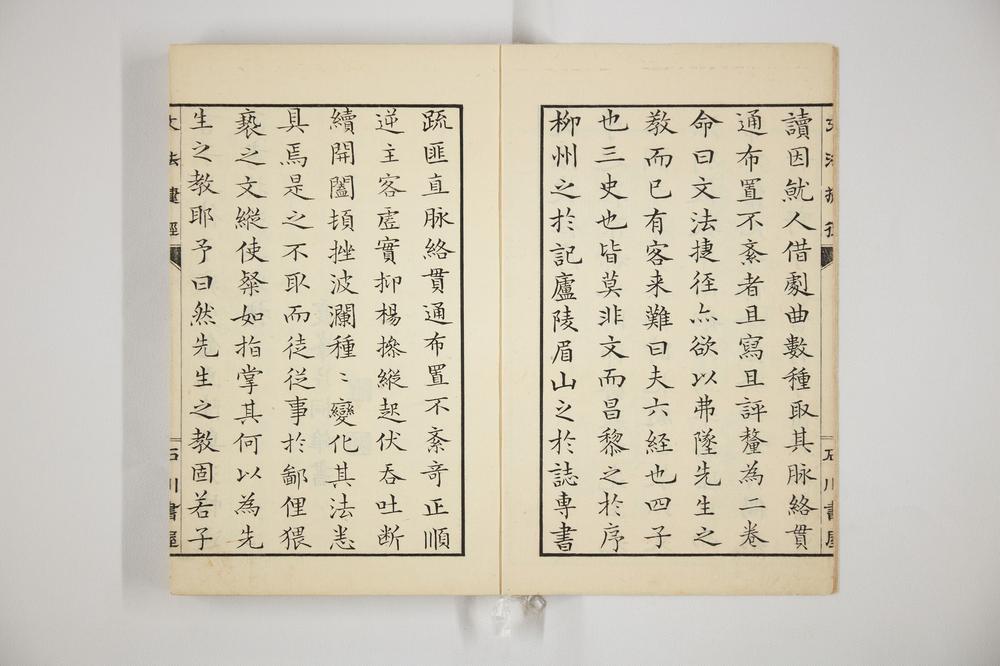 讀因就人借劇曲數種取其脉絡貫
通布置不紊者且寫且評釐為二卷
命曰文法捷徑亦欲以弗墜先生之
教而已有客来難曰夫六経也四子
也三史也皆莫非文而昌黎之於序
柳州之於記廬陵眉山之於誌専書
疏匪直脉絡貫通布置不紊奇正順
逆主客虛實抑楊摻縱起伏呑吐断
續開闔頓挫波瀾種〻變化其法悉
具焉是之不取而徒従事於鄙俚猥
褻之文縱使粲如指掌其何以為先
生之教耶予曰然先生之教固若子
文法捷徑
石川書屋